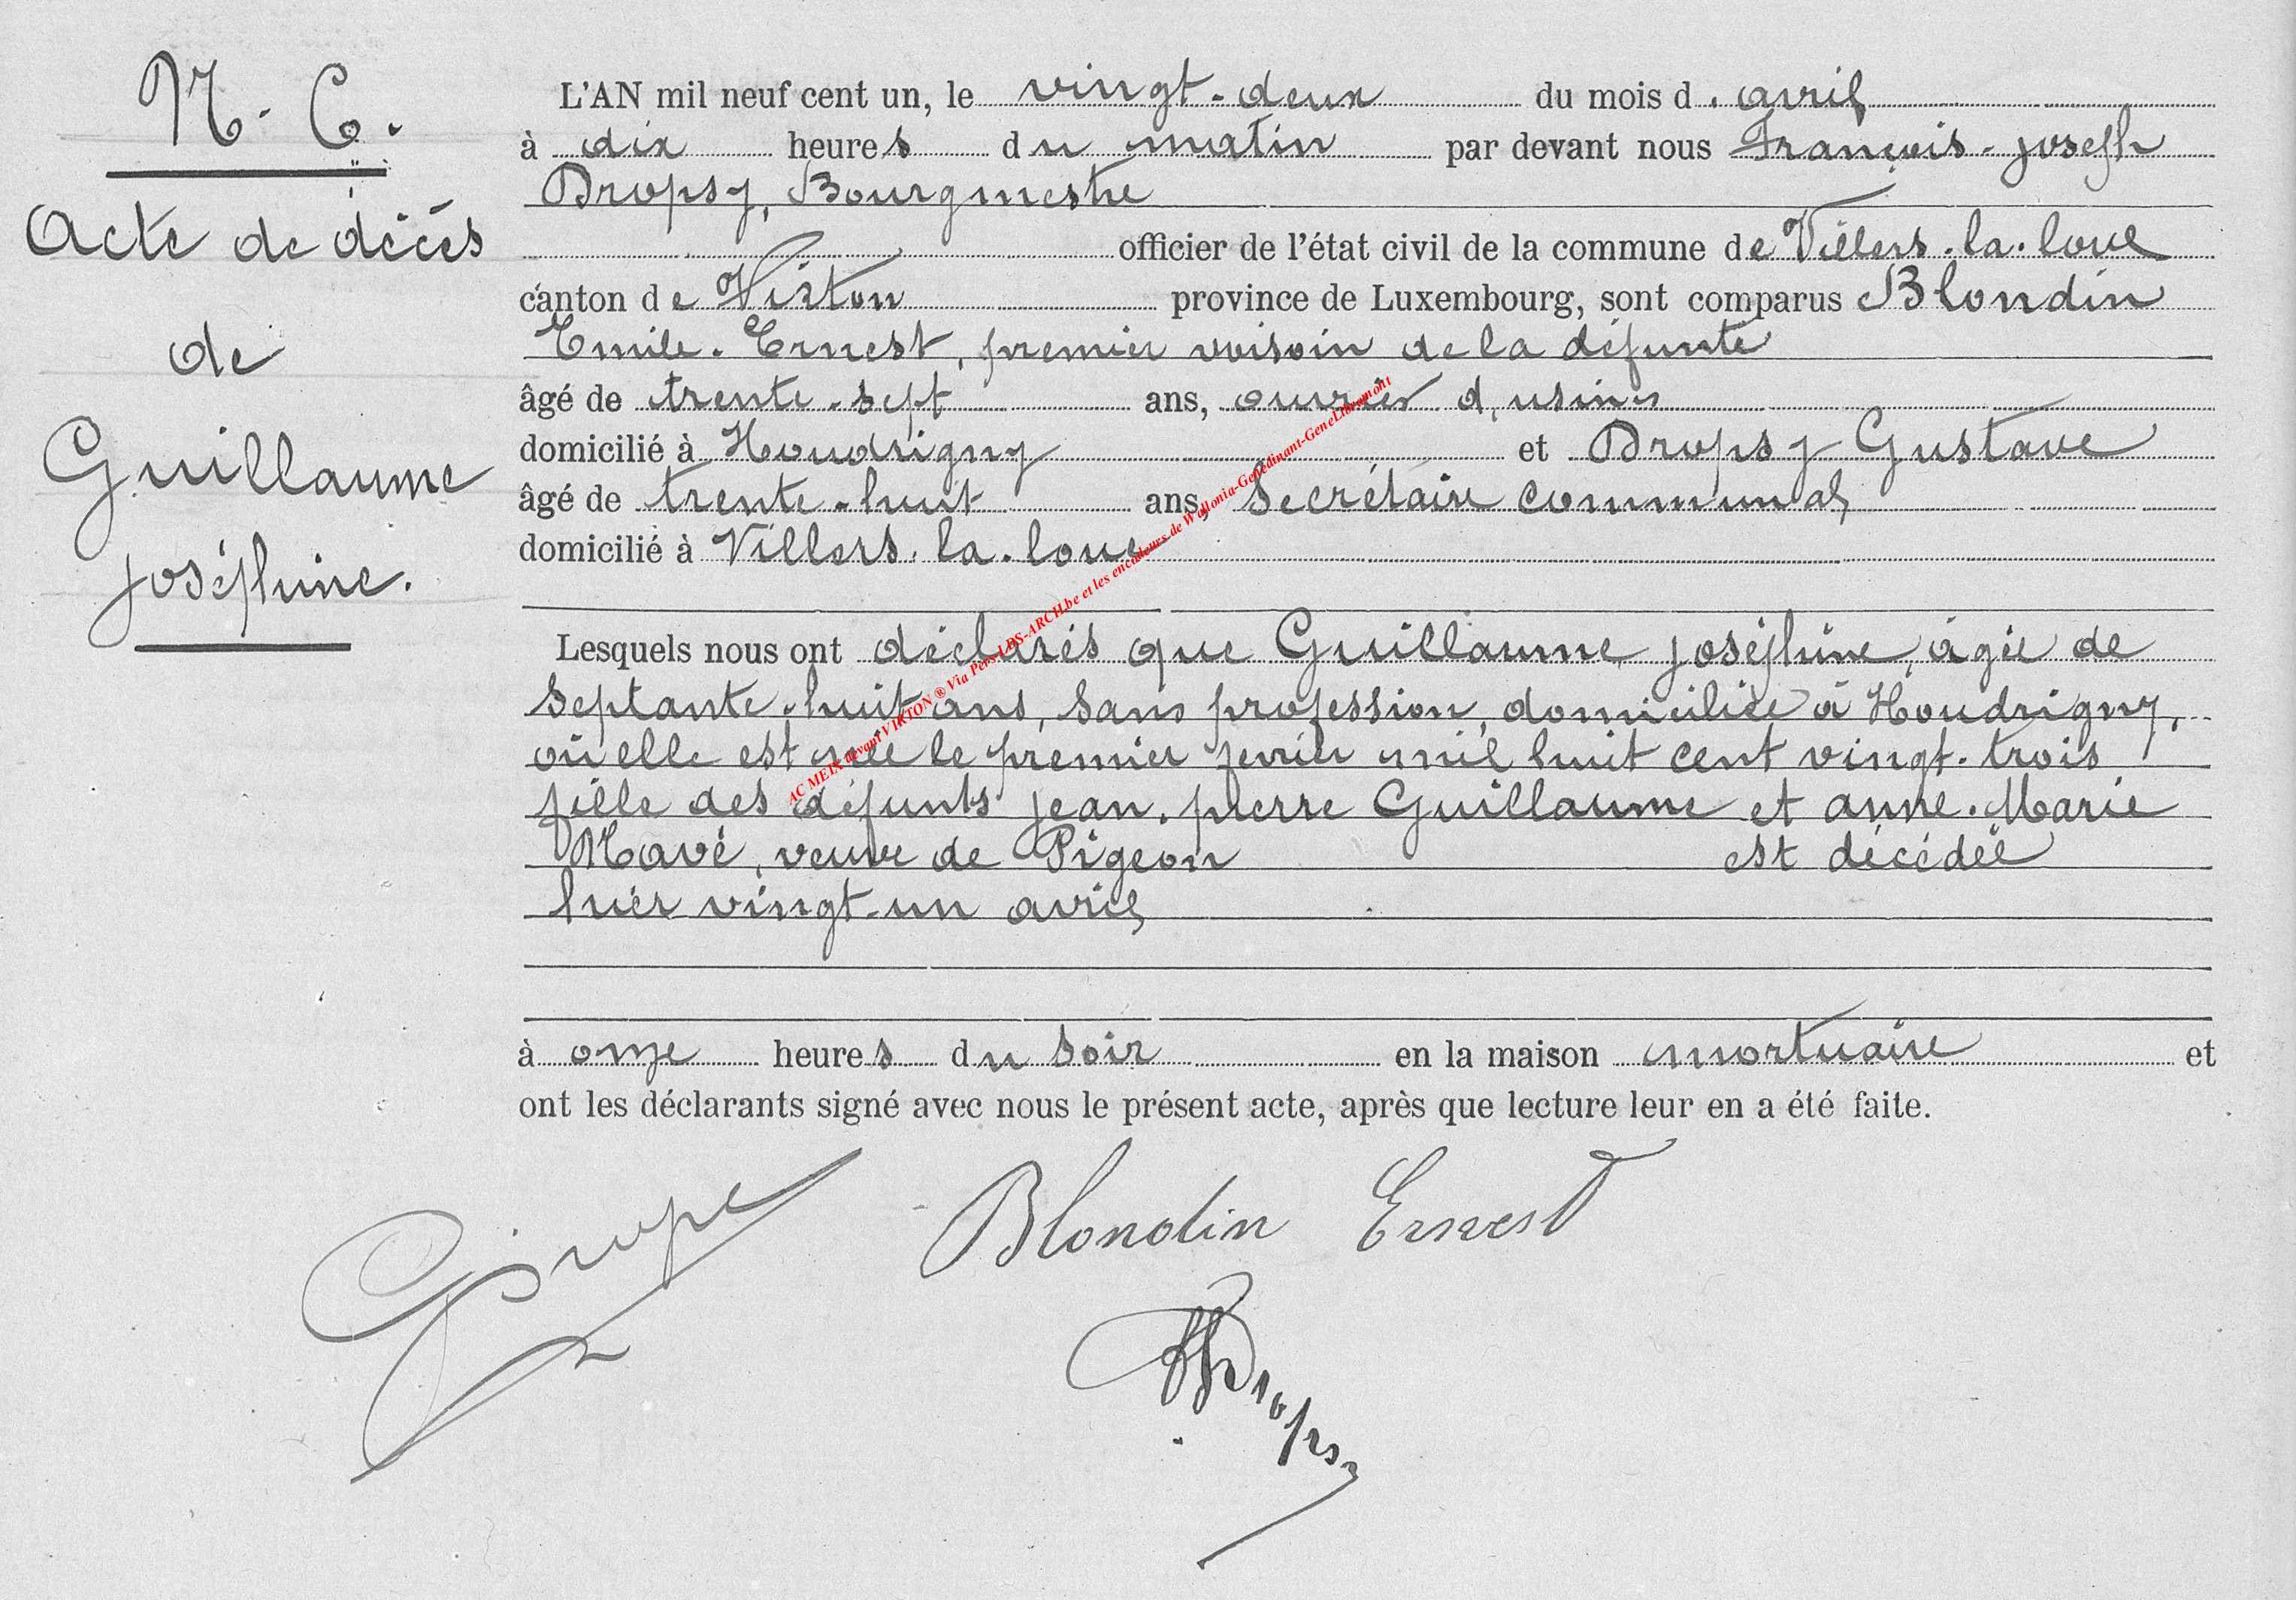 N. 6.
Acte de décès
de
Guillaume
joséphine.
L'AN mil neuf cent un, le vingt-deux du mois d' avril
à dix heures du matin par devant nous François-joseph
Dropsy, Bourgmestre
officier de l'état civil de la commune de Villers-la-loue
canton de Virton province de Luxembourg, sont comparus Blondin
Emile-Ernest, premier voisin de la défunte
âgé de trente-sept ans, ouvrier d'usines
domicilié à Houdrigny et Dropsy Gustave
âgé de trente-huit ans, Secrétaire communal
domicilié à Villers-la-loue
Lesquels nous ont déclarés que Guillaume, joséphine, âgée de
septante-huit ans, sans profession, domiciliée à Houdrigny,
où elle est née le premier fevrier mil huit cent vingt-trois
fille des défunts jean-pierre Guillaume et anne-Marie
Havé, veuve de Pigeon est décédée
hier vingt-un avril
à onze heures du soir en la maison mortuaire et
ont les déclarants signé avec nous le présent acte, après que lecture leur en a été faite.
Blondin Ernest
Dropsy
AC MEIX devant VIRTON ® Via Pers-LDS-ARCH.be et les encodeurs de Wallonia-Genedinant-GeneLibramont